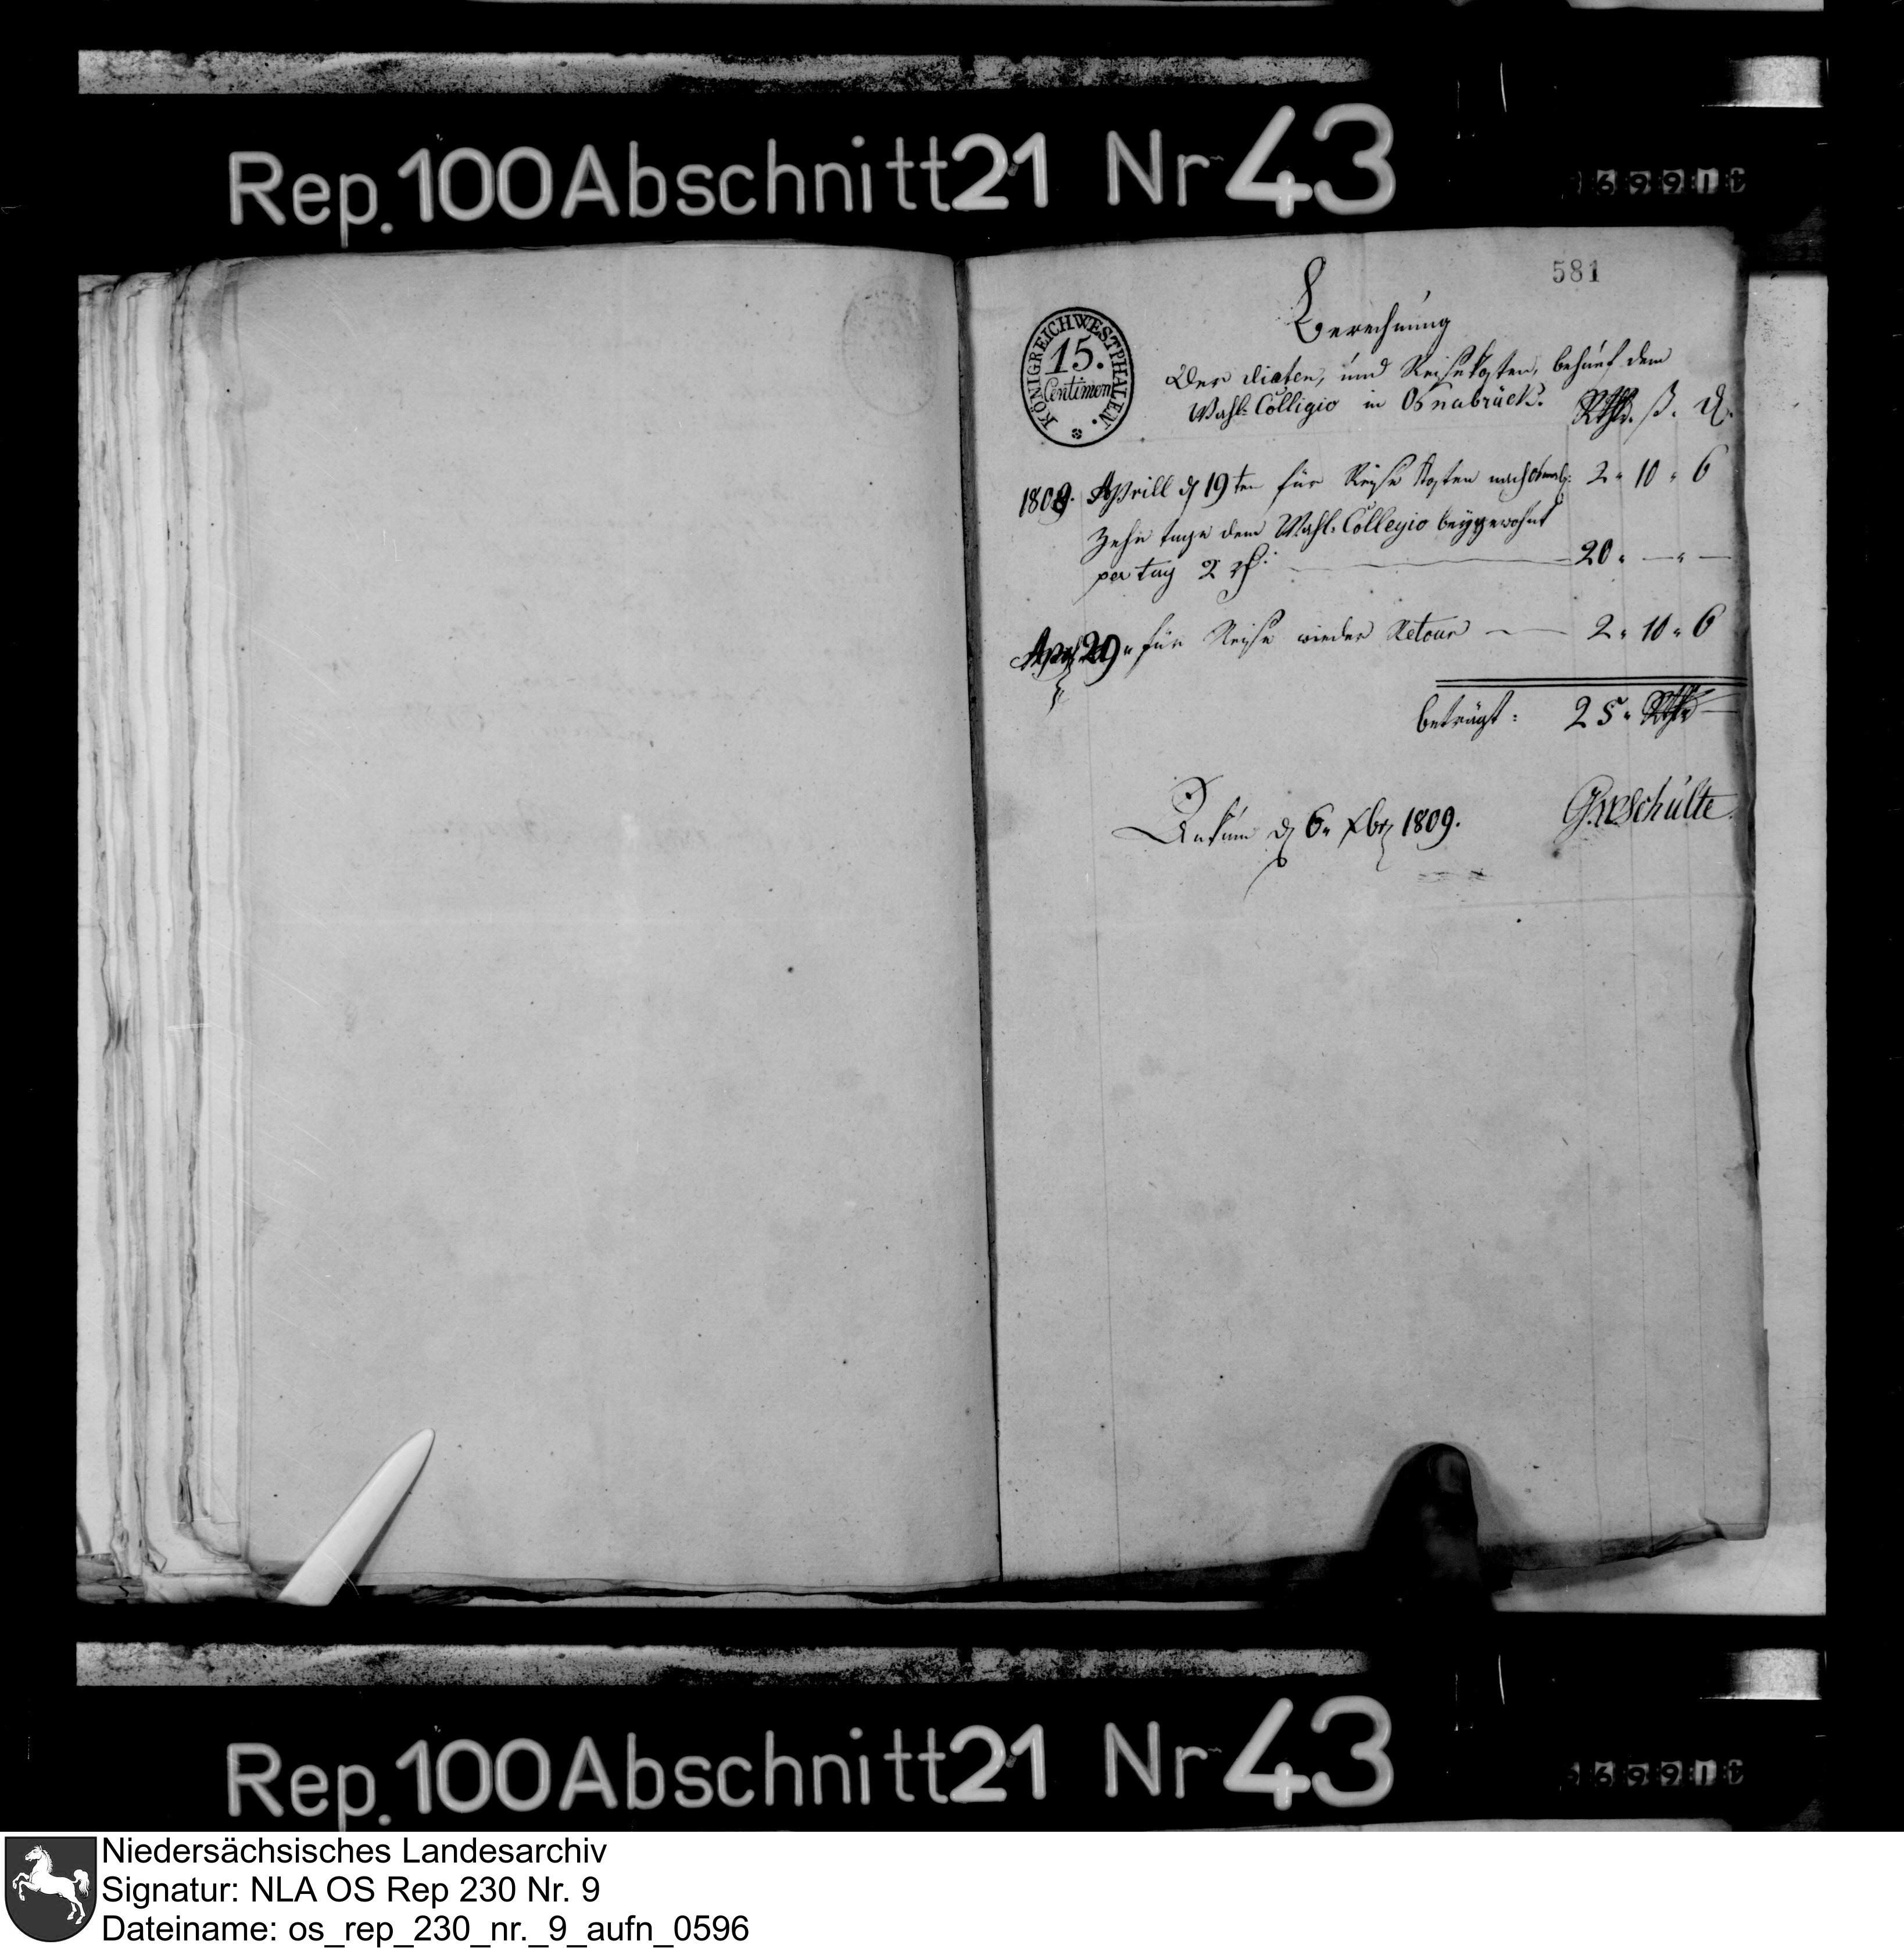 Rep. 100 Abschnitt 21 Nr 43
581
KÖNIGREICH WESTPHALEN.
15.
Centimen
Berechnung
Der diaten, und Reisekosten, behuef dem
Wahl-Colligio in Osnabrück.
Rthlr. ß. d.
1809. Aprill d 19ten für Reise Kosten nach Osnab: 2 " 10 " 6
Zehn tage dem Wahl-Collegio beygewohnt
per tag 2 rh: 20 " — " —
29 " für Reise wieder Retour — 2 " 10 " 6
beträgt: 25 " Rthlr —
Ankum d 6" Xbr 1809.
Schulte
Rep. 100 Abschnitt 21 Nr 43
Niedersächsisches Landesarchiv
Signatur: NLA OS Rep 230 Nr. 9
Dateiname: os_rep_230_nr._9_aufn_0596